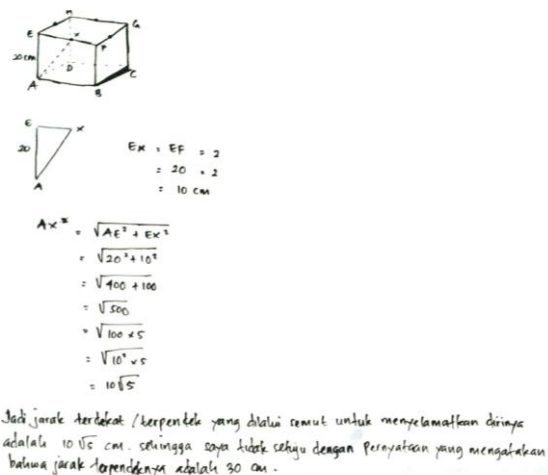 H
G
E
x
F
20 cm
D
A
B
C
E
x
20
A
Ex = EF : 2
= 20 : 2
= 10 cm
Ax = √AE² + Ex²
= √20² + 10²
= √400 + 100
= √500
= √100 x 5
= √10² x 5
= 10√5
Jadi jarak terdekat / terpendek yang dilalui semut untuk menyelamatkan dirinya
adalah 10√5 cm. sehingga saya tidak setuju dengan Pernyataan yang mengatakan
bahwa jarak terpendeknya adalah 30 cm.